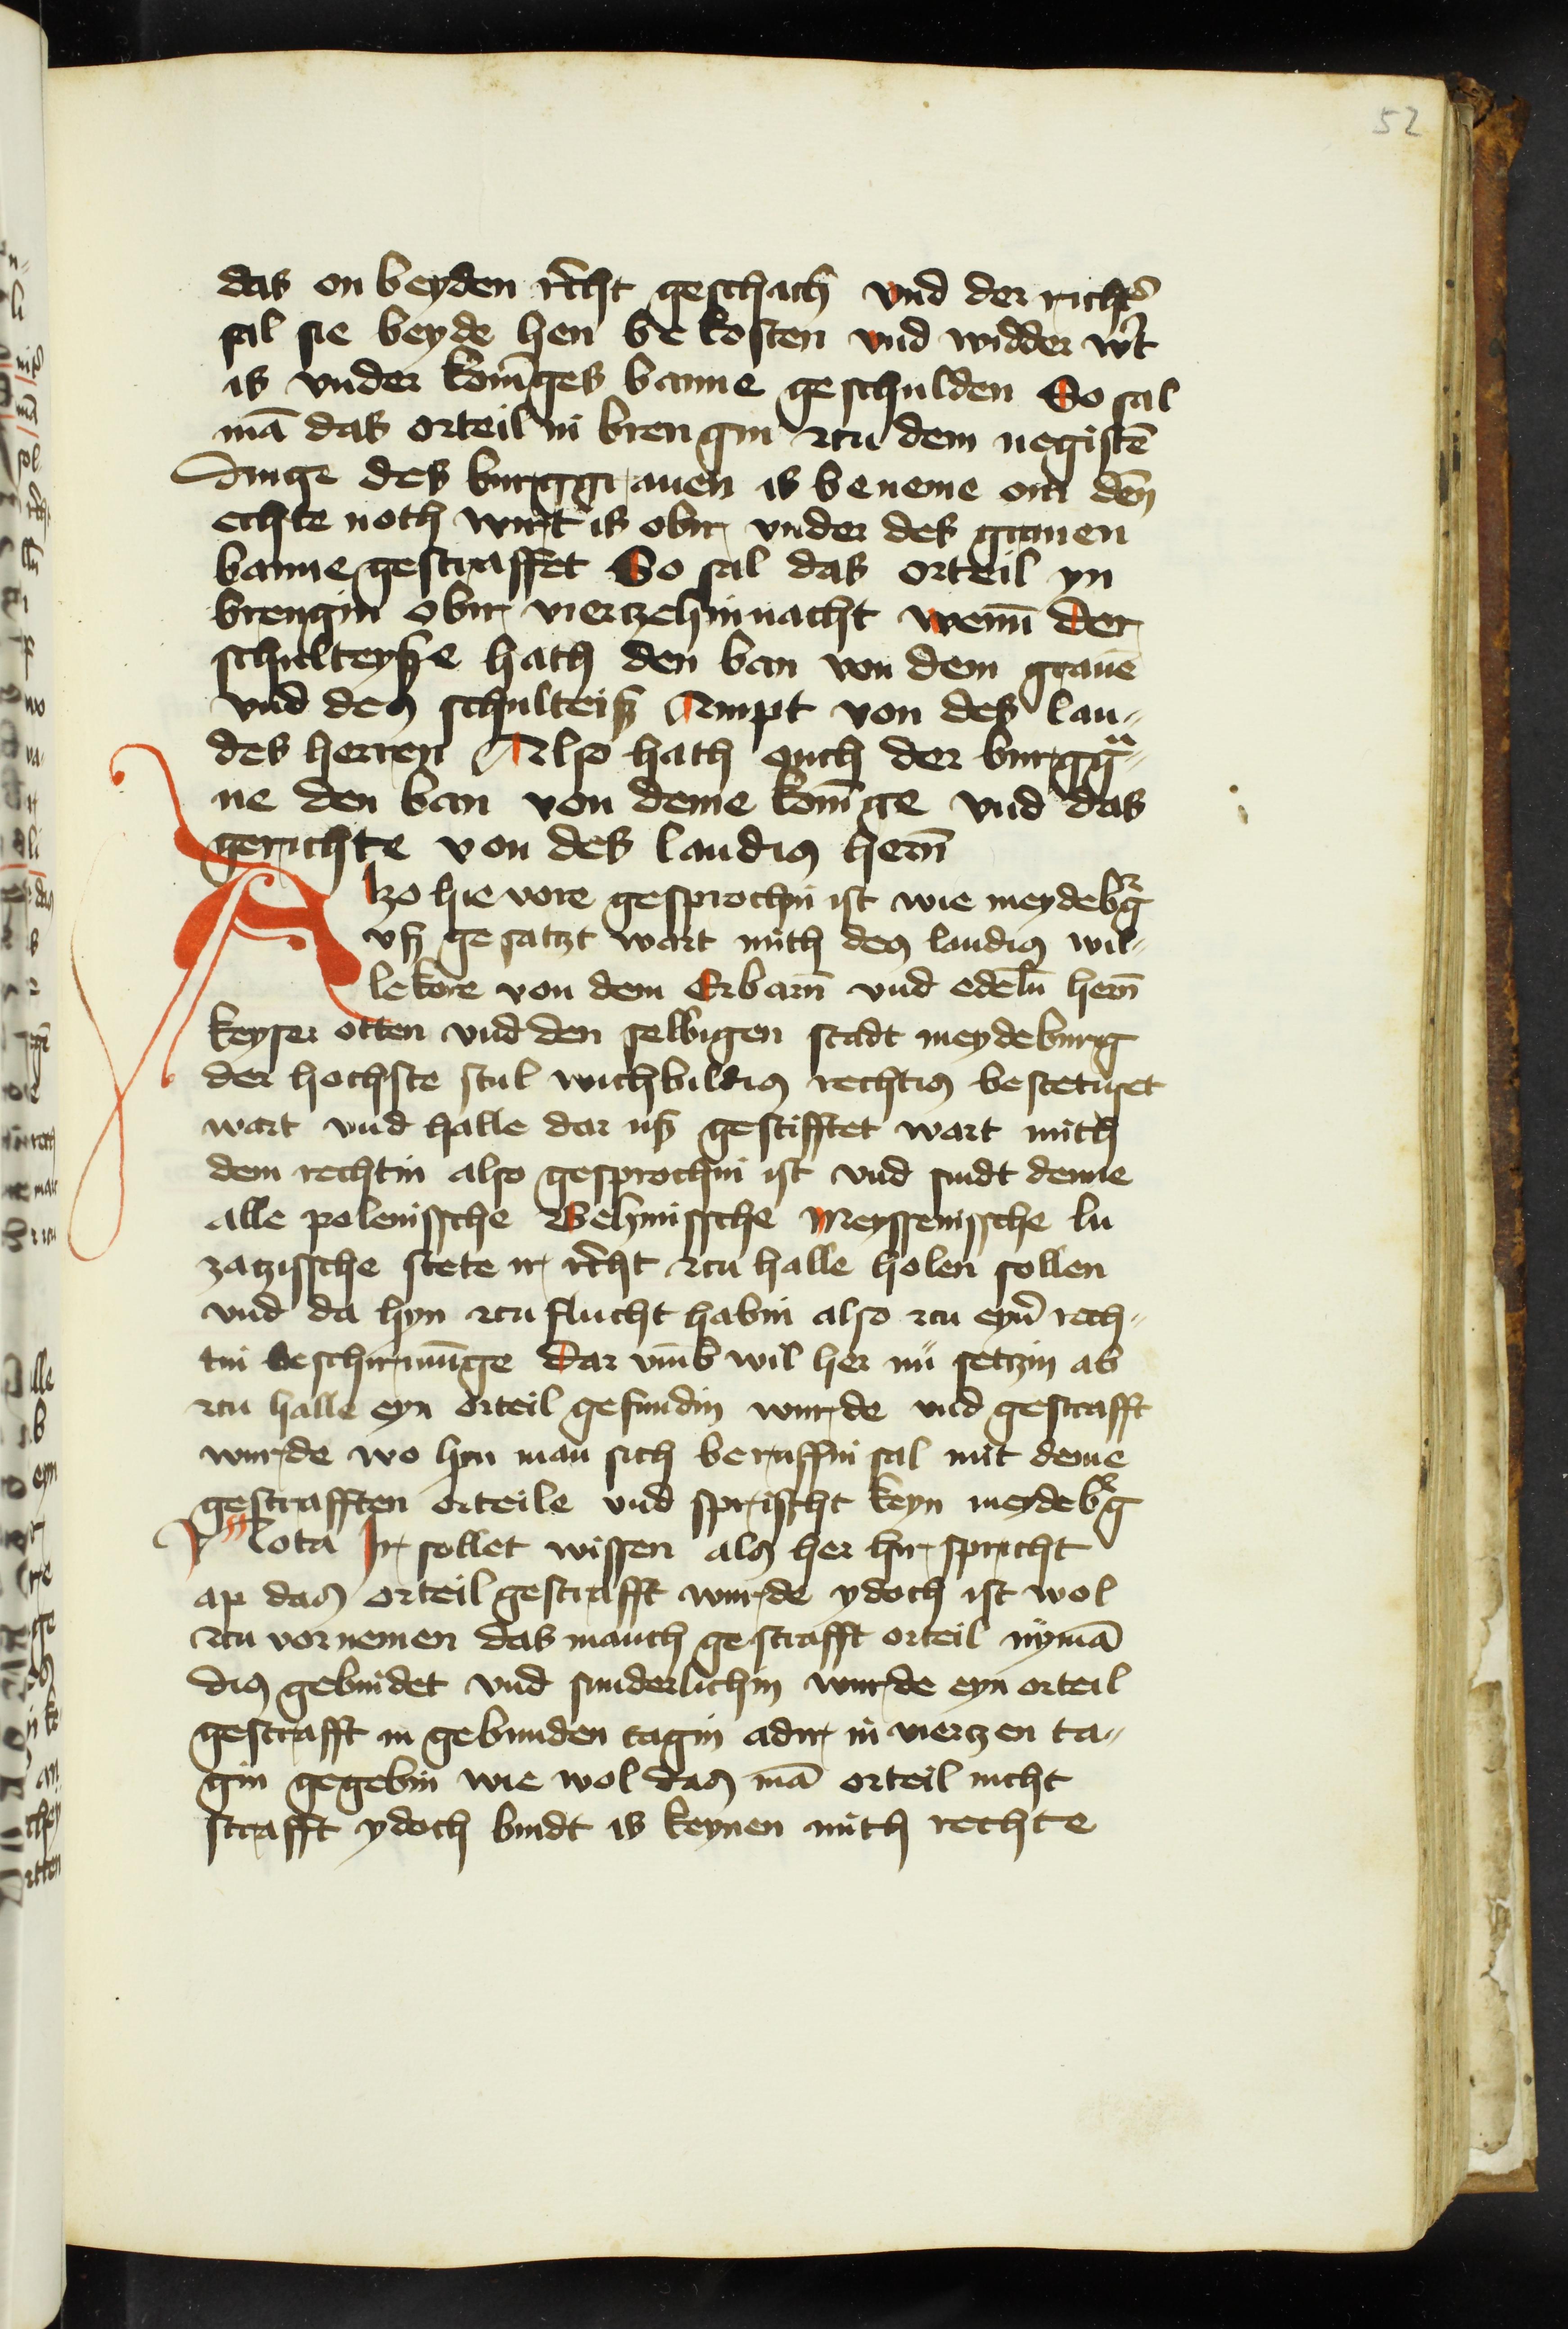 52
das on beyden r̄cht geschach vnd der richt̕
sal sie beyde hen be kosten vnd widder w̕t
is vnder konīges banne geschulden So sal
mā das orteil in brengin zcu dem negistē
dinge des burggrauen is beneme om dēn
echte noth wirt is obir vnder des grauen
banne gestraffet So sal das orteil yn
brengin obir viertzehin nacht wenn̄ der
schulteysse hath den ban von dem grauē
vnd des schulteiß Ampt von des lan-
des herren Also hath ouch der burggra-
ue den ban von deme konīge vnd das
gerichte von des landis hern̄
Alzo hie vore gesprochin ist wie meydeb̕g
vß gesatzt wart mith des landis wil-
lekore von dem Erbarn̄ vnd edeln̄ hern̄
keyser otten vnd den selbigen stadt meydeburg
der hochste stul wichbildis rechtis bestetiget
wart vnd halle dar uß gestifftet wart mith
dem rechtin also gesprochin ist vnd sindt denne
alle polenissche Behmissche Meyssenissche lu
zatzissche stete ir r̄cht zcu halle holen sollen
vnd da hyn zcu flucht habin also zcu eyn̄ rech-
tin beschirmūnge Dar vm̄b wil her nu setzin ab
zcu halle eyn orteil gefundin wurde vnd gestrafft
wurde wo hyn man sich beruffin sal mit deme
gestrafften orteile vnd spricht keyn meydeb̕g
Nota Ir sollet wissen als her hir spricht
ap das orteil gestrafft wurde ydoch ist wol
zcu vornemen das manch gestrafft orteil nymā
dis gebindet vnd sunderlichin wurde eyn orteil
gestrafft in gebunden tagin adir in vierzen ta-
gin gegebin wie wol das mā orteil nicht
strafft ydoch bindt is keynen mith rechte